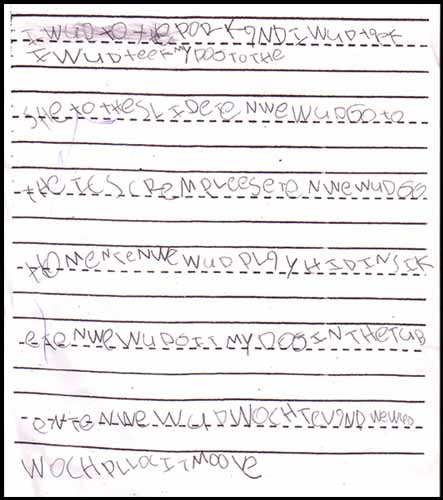 I WUD to the PORK AND I WUD tek
I WUD teek MY DOG TO THE
the to the SLIDE teN We WUD GO to
the ICSCREM PLeeSe teN We WUD GO
HOMe teNWe WUD PLAY HIDINSIK
teNWe WUD GIT MY DOG IN THE TUB
teN We WUD WOCH TEV AND we wud
WOCH